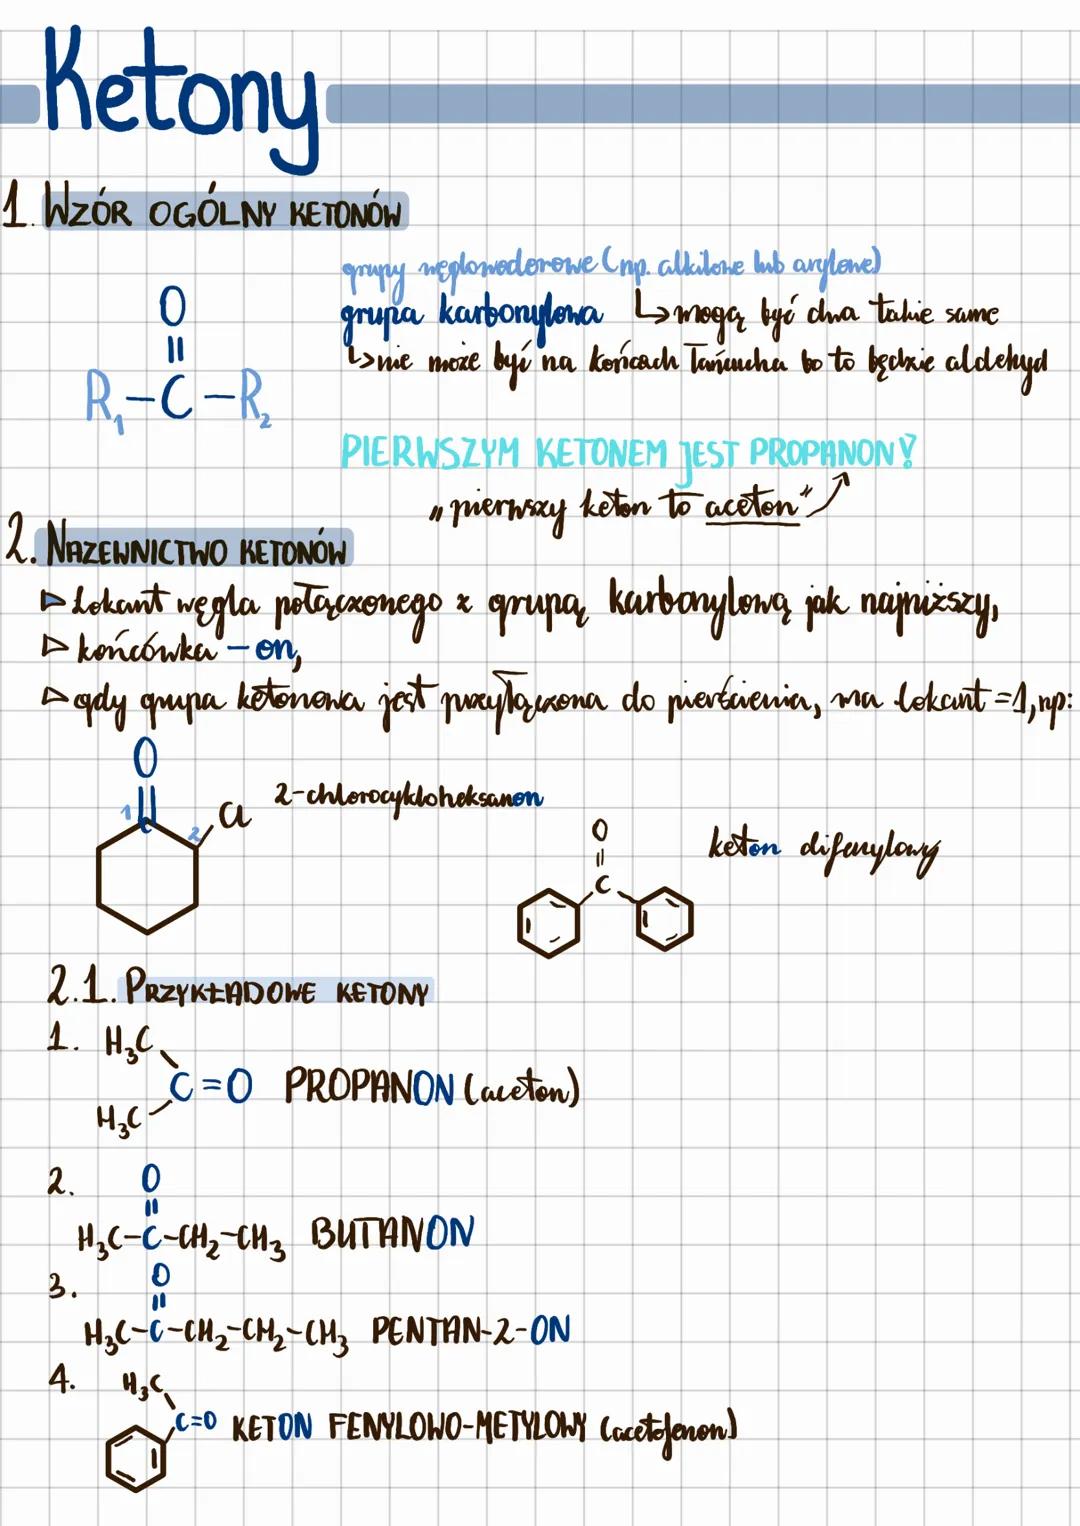 Ketony
1. WZÓR OGÓLNY KETONÓW
grupy węglowodorowe (np. alkilowe lub arylowe)
grupa karbonylowa ↳ mogą być dwa takie same
↳ nie może być na końcach łańcucha bo to będzie aldehyd
O
||
R₁-C-R₂
PIERWSZYM KETONEM JEST PROPANON!
"pierwszy keton to aceton"
2. NAZEWNICTWO KETONÓW
▷ Lokant węgla połączonego z grupą karbonylową jak najniższy,
▷ końcówka -on,
▷ gdy grupa ketonowa jest przyłączona do pierścienia, ma lokant =1, np:
O
1
2
Cl
2-chlorocykloheksanon
O
||
C
keton difenylowy
2.1. PRZYKŁADOWE KETONY
1. H₃C
C=O PROPANON (aceton)
H₃C
2. O
||
H₃C-C-CH₂-CH₃ BUTANON
3. O
||
H₃C-C-CH₂-CH₂-CH₃ PENTAN-2-ON
4. H₃C
C=O KETON FENYLOWO-METYLOWY (acetofenon)